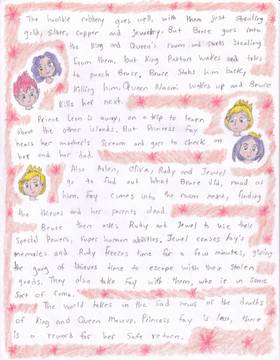 The humble robbery goes well, with them just stealing
gold, silver, copper and Jewelry. But Bruce goes into
the King and Queen's room and starts stealing
from them, but King Pasture wakes and tries
to punch Bruce, Bruce Stabs him back,
killing him. Queen Naomi wakes up and Bruce
kills her next.
Prince Leon is away, on a trip to learn
about the other islands. But Princess Fay
hears her mother's Scream and goes to check on
her and her dad.
Also Helen, Oliva, Rudy and Jewel
go to find out What Bruce did, mad at
him. Fay comes into the room next, finding
the thieves and her parents dead.
Bruce then asks Rudy and Jewel to use their
Special Powers, super human abilities. Jewel erases Fay's
memories and Rudy freezes time for a few minutes, giving
the gang of thieves time to escape with their Stolen
goods. They also take Fay with them, who is in some
Sort of coma.
The World takes in the Sad news of the deaths
of King and Queen Mauve. Princess Fay is lost, there
is a reward for her Safe return.